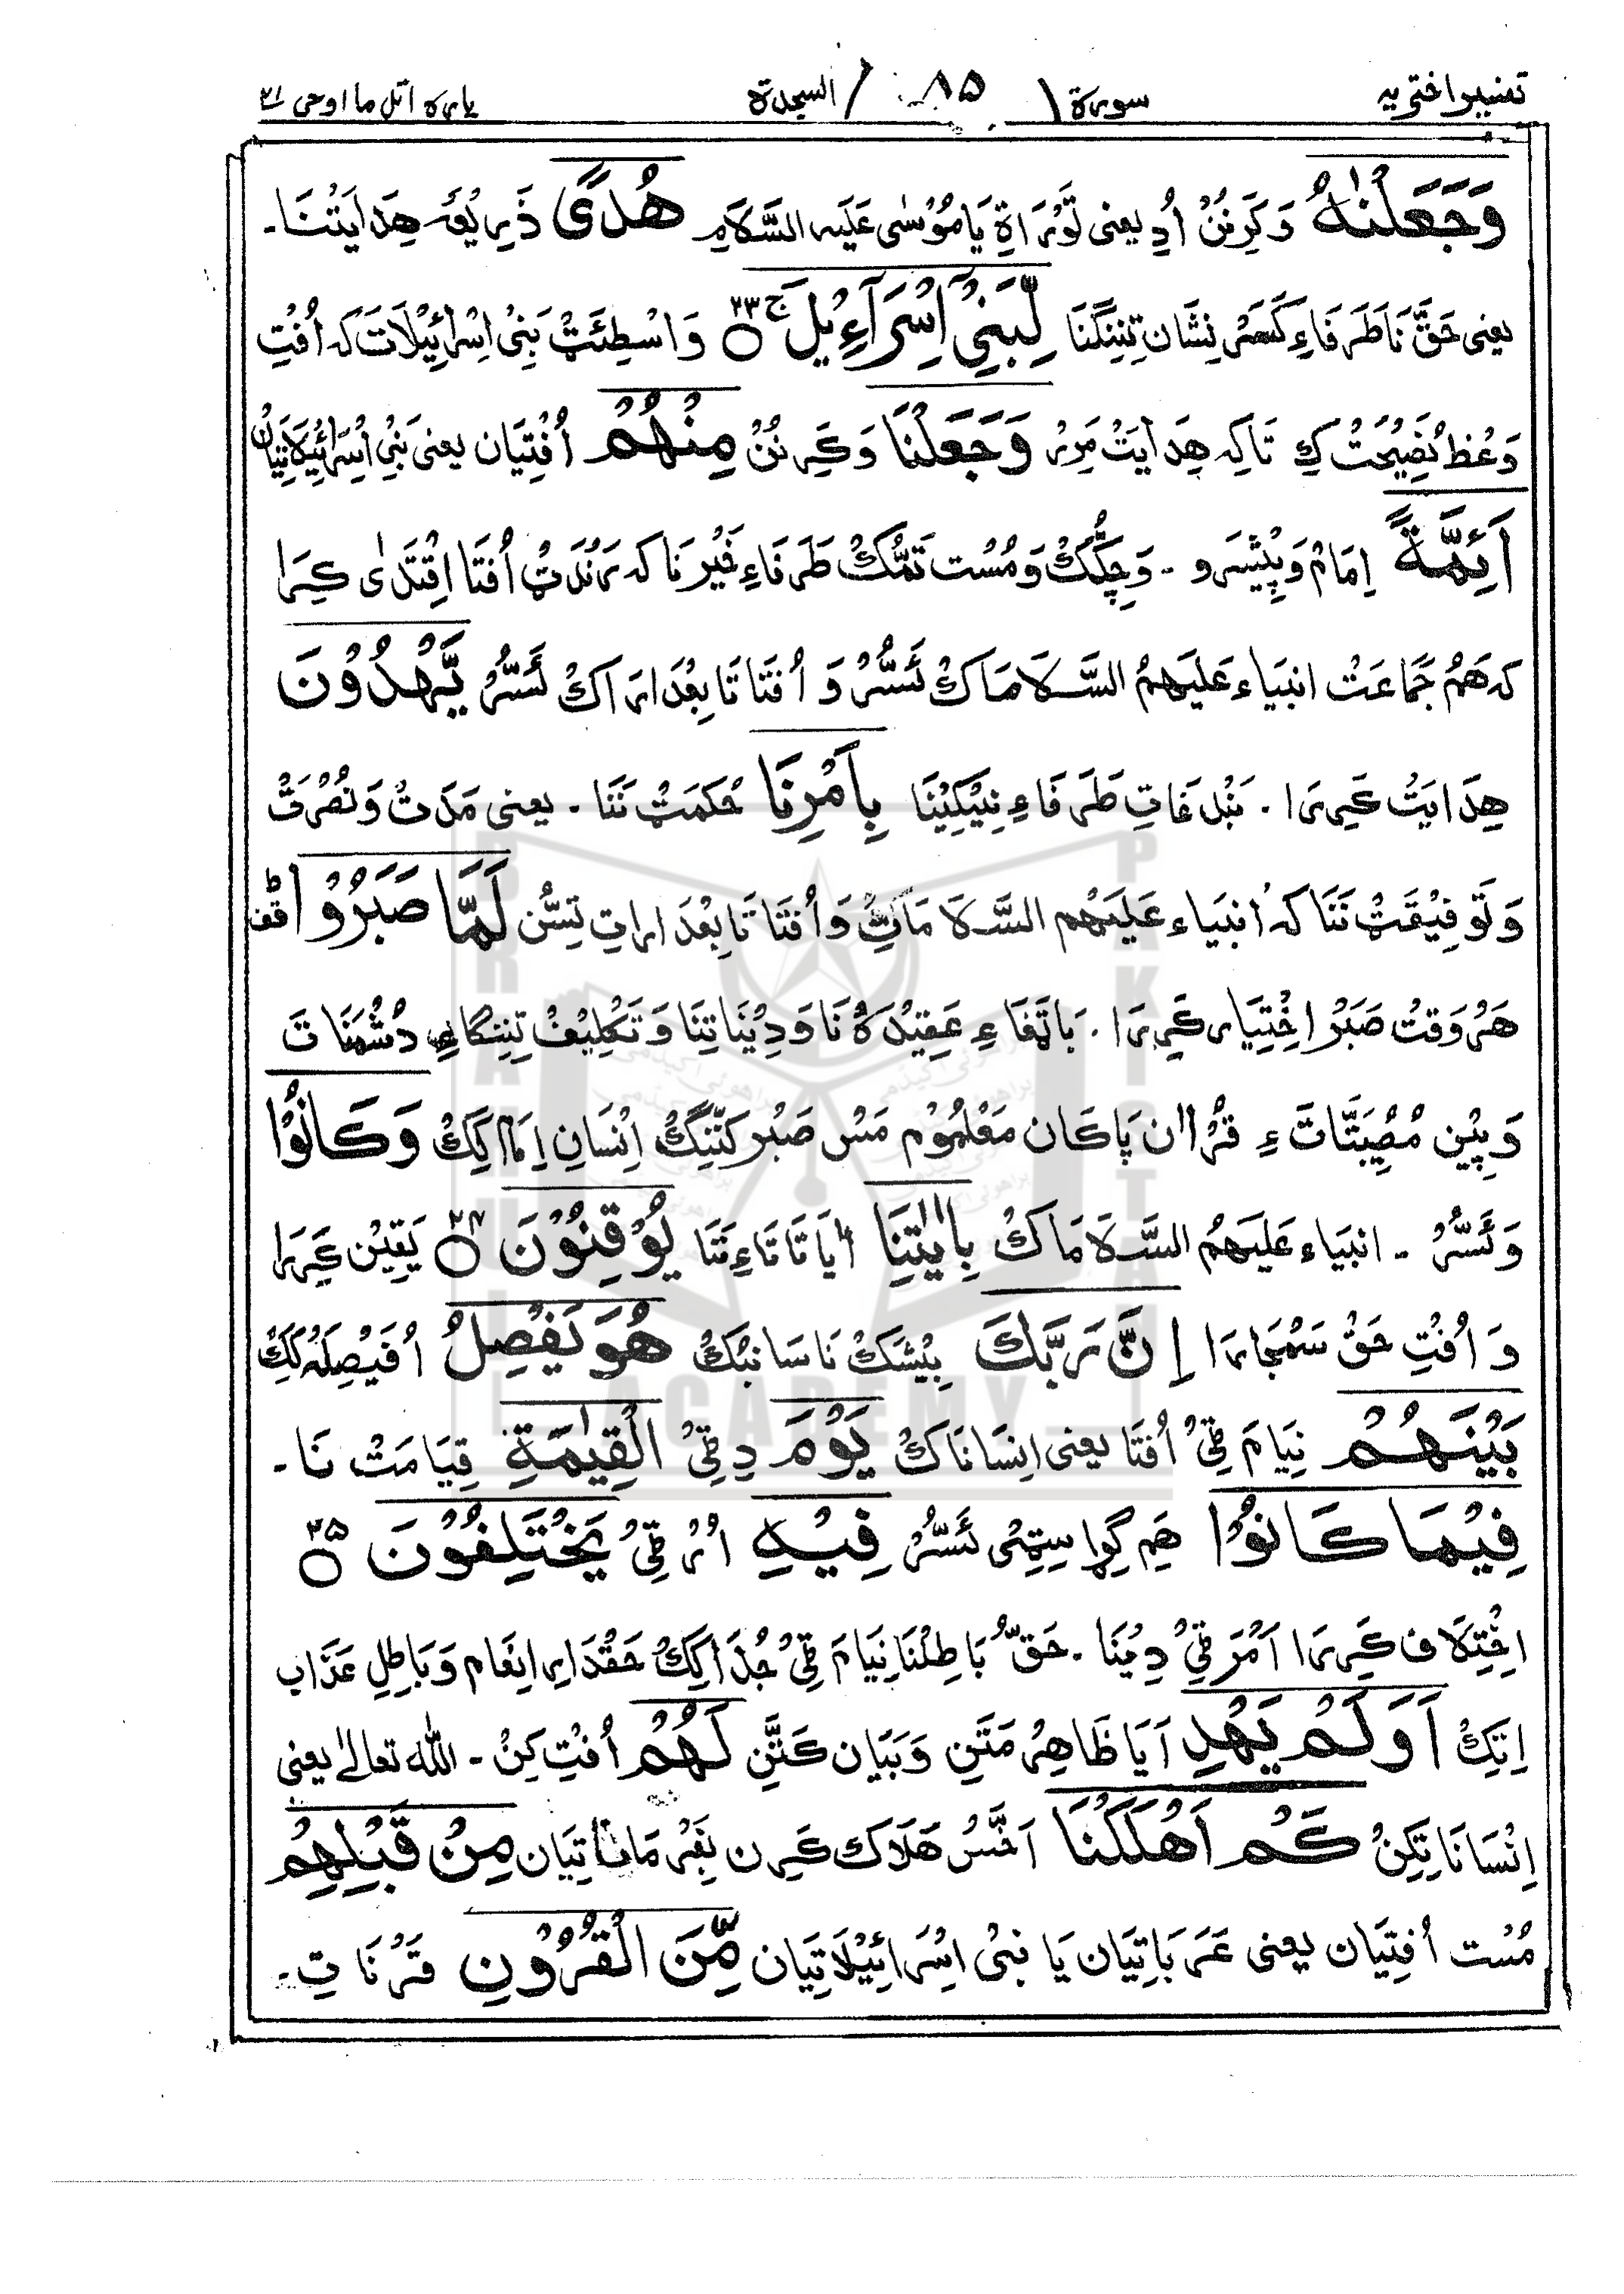 تفسیر اختریہ سورة السجدة ۸۵ پارہ اتل ما اوحی ۲۱
وَجَعَلْنٰهُ وَکَرِنُنْ اُدِ یعنی تَوْرَاةِ یَا مُوْسٰی عَلَیہ السَّلَام هُدًی ذَرِیْعَہ هِدَایَتْنَا۔
یعنی حَقَّ نَا طَرَفَاءِ کَسَرْ نِشَان تِنِنْگَنَا لِّبَنِیْٓ اِسْرَآءِیْلَ ج ۲۳ وَاسْطِئَٹْ بَنِیْ اِسْرَائِیْلَاتَ کہ اُفْتِ
وَعْظ نَصِیْحَتْ کِ تَاکِہ هِدَایَتْ مَرِرْ وَجَعَلْنَا وَکَرِنُنْ مِنْهُمْ اُفْتِیَان یعنی بَنِیْ اِسْرَائِیْلَاتِیَان
اَئِمَّةً اِمَامْ وَ پِیْشَرو ۔ وَچِکَّکْ وَ مُسْت تَمُّکْ طَرَفَاءِ خَیْرنَا کہ رَنْدَٹْ اُفتَا اِقْتَدٰی کِرَا
کہ هَمْ جَمَاعَتْ انبیَاء عَلَیهِمُ السَّلَامَاکْ ئَسُّرْ وَ اُفْتَا تَابِعْدَارَاکْ ئَسُّرْ یَّهْدُوْنَ
هِدَایَتْ کَرِرَا ۔ بَنْدَغَاتِ طَرَفَاءِ نِیْکِیْنَا بِاَمْرِنَا حُکمَٹْ نَنَا ۔ یعنی مَدَتْ وَ نُصْرَتْ
وَتَوفِیْقَٹْ نَنَا کہ اَنبیَاء عَلَیهُم السَّلَامَاتِ وَ اُفتَا تَابِعْدَاراتِ تِسُّن لَمَّا صَبَرُوْا قف
هَرْوَقتْ صَبْر اخْتِیَار کَرِرَا ۔ بَاتِّفَاءِ عَقِیْدَہ نَا وَ دِیْنَا تِنَا وَ تَکْلِیْفْ تِنِنْگاءِ دُشْمَنَاتَ
وَ پِیْن مُصِیْبَتَاتَءِ قُرْاٰن پَاکَان مَعْلُوْم مَسْ صَبْر کَنِّنْگْ اِنْسَانِ اِمَام کِکْ وَکَانُوْا
وَئَسُّرْ ۔ انبیَاء عَلَیهِمُ السَّلَامَاکْ بِاٰیٰتِنَا اٰیَاتَاتَاءِ نَنَا یُوْقِنُوْنَ ۲۴ یَقِیْن کَرِرَا
وَ اُفْتِ حَقْ سَمْجَارَا اِنَّ رَبَّکَ بِیْشَکْ نَا سَائبکْ هُوَ یَفْصِلُ اُ فَیْصِلَہ کِکْ
بَیْنَهُمْ نِیَامَ ٹِیْ اُفتَا یعنی اِنسَانَاکْ یَوْمَ دِ ٹِیْ الْقِیٰمَةِ قِیَامَتْ نَا۔
فِیْمَا کَانُوْا هَم گِڑاسِٹِّیْ ئَسُّرْ فِیْهِ اُرْ ٹِیْ یَخْتَلِفُوْنَ ۲۵
اخْتِلَاف کَرِرَا اَمْرَ ٹِیْ دِیْنَا ۔ حَقّ بَاطِلْنَا نِیَامَ ٹِیْ جُدَا کِکْ حَقْدَارِ اِنْعَام وَ بَاطِلِ عَذَاب
اِتِکْ اَوَلَمْ یَهْدِ اَیَا ظَاهِرْ مَتَن وَ بَیَان کَتَّن لَهُمْ اُفْتِ کِنْ ۔ اللّٰه تعالٰی یعنی
اِنْسَانَا تِکِنْ کَمْ اَهْلَکْنَا اَخَسْ هَلَاک کَرِن مِنْ قَبْلِهِمْ
مُسْت اُفتِیَان یعنی عَرَبَاتِیَان یَا بَنِیْ اِسْرَائِیْلَاتِیَان مِّنَ الْقُرُوْنِ قَرْنَاتِ۔